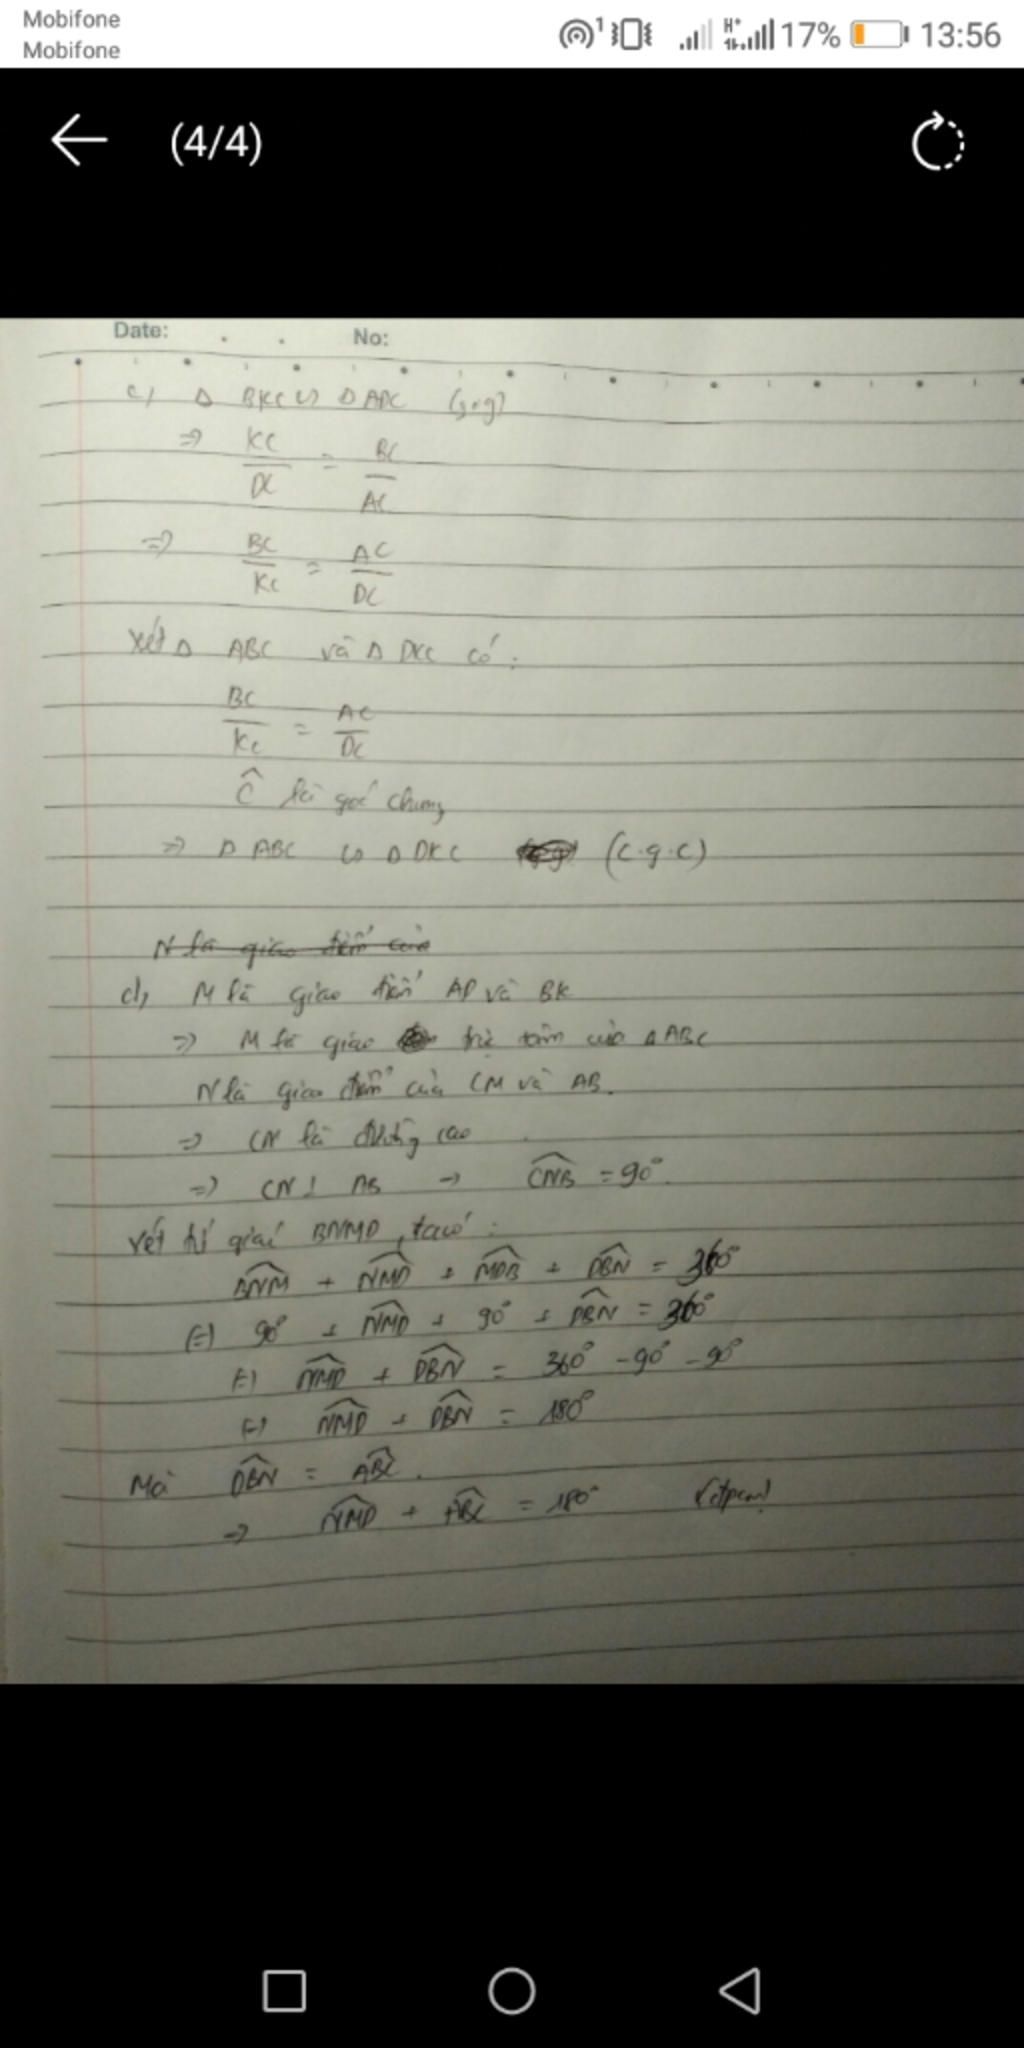 Mobifone
Mobifone
1 H+ 17% 13:56
(4/4)
Date: No:
c, Δ BKC ∽ Δ ADC (g.g)
⇒ KC/DC = BC/AC
⇒ BC/KC = AC/DC
Xét Δ ABC và Δ DKC có:
BC/KC = AC/DC
Ĉ là góc chung
⇒ Δ ABC ∽ Δ DKC (c.g.c)
N là giao điểm của
d, M là giao điểm AD và BK
⇒ M là giao trực tâm của Δ ABC
N là giao điểm của CM và AB.
⇒ CN là đường cao
⇒ CN ⊥ AB → CNB = 90°.
Xét tứ giác BNMD, ta có:
BNM + NMD + MDB + DBN = 360°
(=) 90° + NMD + 90° + DBN = 360°
(=) NMD + DBN = 360° - 90° - 90°
(=) NMD + DBN = 180°
Mà DBN = ABC.
⇒ NMD + ABC = 180° (đpcm)